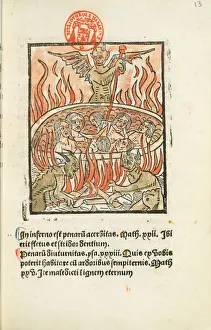 13
In inferno est penarū acerbitas. Math. xxii. Ibi
erit fletus et stridor dentium.
Penarū diuturnitas. psa. xxxiii. Quis ex vobis
poterit habitare cū ardoribus sempiternis. Math
xxv. Ite maledicti in ignem eternum